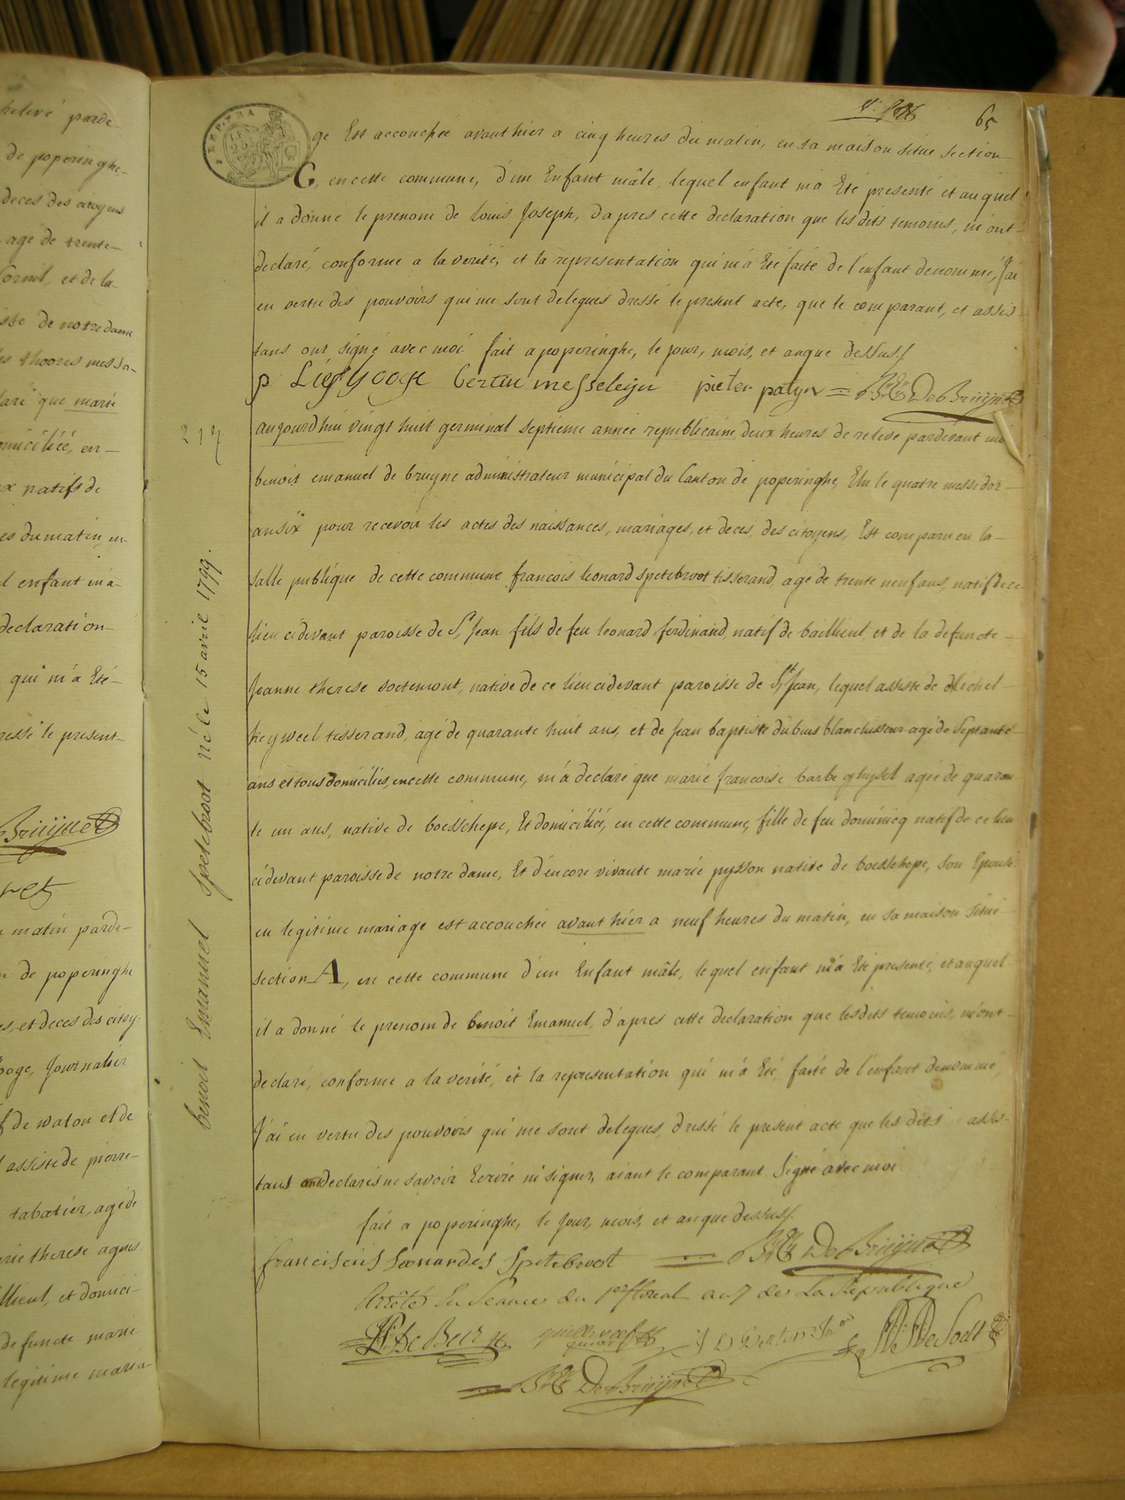 65
ge Est accouchée avant hier a cinq heures du matin, en sa maison située section
G en cette commune, d'un Enfant mâle, lequel enfant m'a Eté presenté et auquel
il a donné le prenom de Louis Joseph, d'apres cette declaration que les dits temoins, m'ont
declaré, conforme a la verité, et la representation qui m'a Eté faite de l'enfant denommé, J'ai
en vertu des pouvoirs qui me sont delegués dressé le present acte, que le comparant, et assis
tans ont signé avec moi fait a poperinghe, le jour, mois, et an que dessus
Bertin messeleyn pieter patyn DeBruijne
217
aujourd'hui vingt huit germinal septieme année republicaine deux heures de relevé pardevant moi
benoit emanuel de bruyne administrateur municipal du Canton de poperinghe, Elu le quatre messidor
an six pour recevoir les actes des naissances, mariages, et deces, des citoyens, Est comparu en la
salle publique de cette commune francois leonard spetebroot tisserand, agé de trente neuf ans, natif de ce
lieu cidevant paroisse de St Jean fils de feu leonard ferdinand natif de baillieul et de la defuncte
Jeanne therese soetemont, native de ce lieu cidevant paroisse de St Jean, lequel assisté de Michel
heyweel tisserand, agé de quarante huit ans, et de Jean baptiste dubus blanchisseur agé de Septante
ans et tous domiciliés, en cette commune, m'a declaré que marie francoise barbe ghysel agée de quaran
te un ans, native de boesschepe, Et domiciliée, en cette commune, fille de feu dominicq natif de ce lieu
cidevant paroisse de notre dame, Et d'encore vivante marie pysson native de boesschepe, son Epouse
en legitime mariage est accouchée avant hier a neuf heures du matin, en sa maison située
section A, en cette commune d'un Enfant mâle, lequel enfant m'a Eté presenté, et auquel
il a donné le prenom de benoit Emanuel, d'apres cette declaration que les dits temoins, m'ont
declaré, conforme a la verité, et la representation qui m'a Eté faite de l'enfant denommé,
J'ai en vertu des pouvoirs qui me sont delegués, dressé le present acte que les dits assis
tans ont declarés ne savoir Ecrire ni signer, aiant le comparant Signé avec moi
fait a poperinghe, le jour, mois, et an que dessus
franciscus Leonardes Spetebroot DeBruijne
Arrêté En Seance du 1er floreal an 7 de La Republique
De Beir DeSodt
DeBruijne
benoit Emanuel spetebroot né le 15 avril 1799.
relevé parde
de poperinghe
deces des citoyens
agé de trente
Cornil, et de la
de notre dame
laré que marie
domiciliée, en
natifs de
es du matin, en
l enfant m'a
declaration
qui m'a Eté
ressé le present
Bruijne
matin parde
de poperinghe
es, et deces des citoy
Journalier
de watou et de
assisté de pierre
tabatier, agé de
rie therese
llieul, et domici
defuncte marie
legitime maria